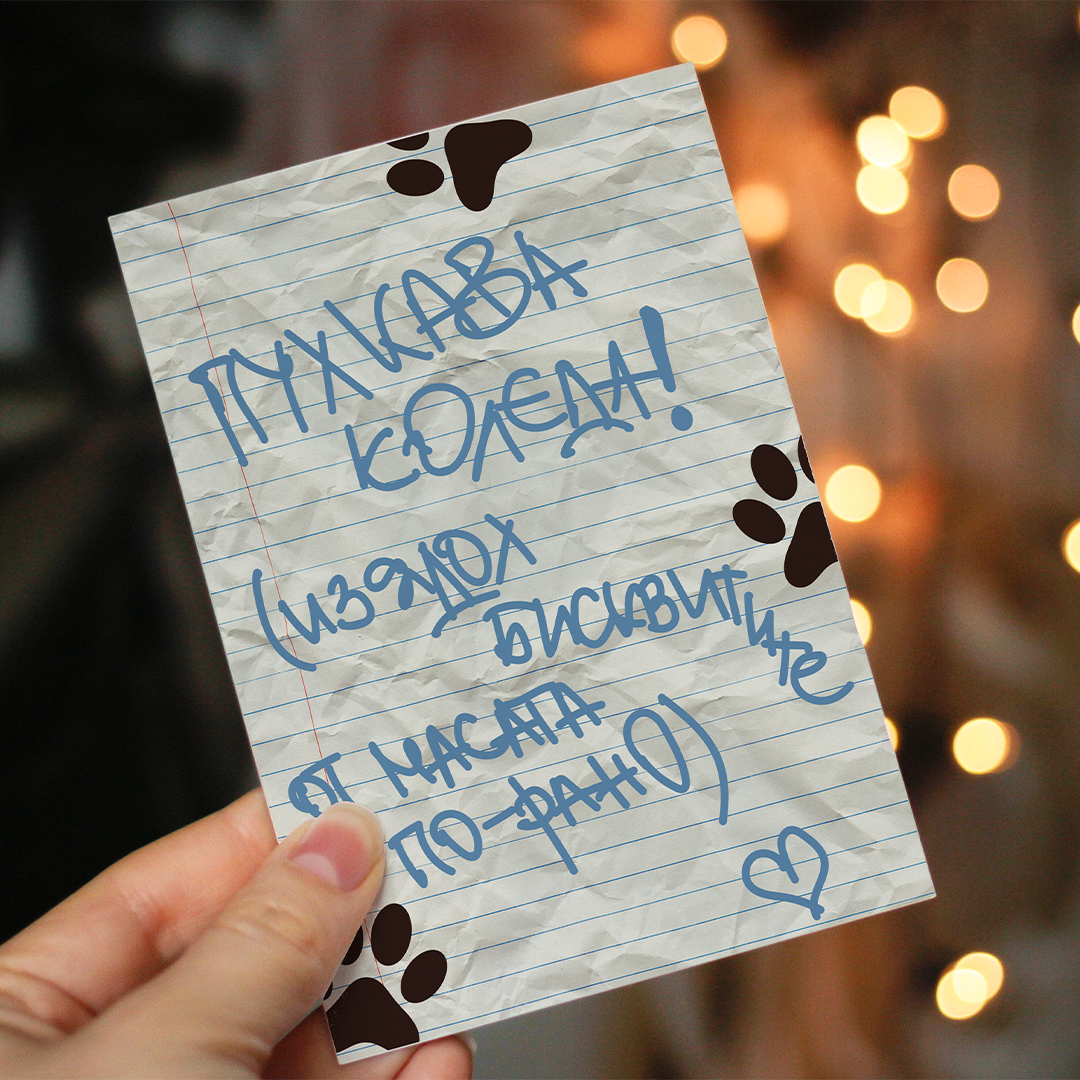 ПУХКАВА
КОЛЕДА!
(ИЗЯДОХ
БИСКВИТИТЕ
ОТ МАСАТА
ПО-РАНО)